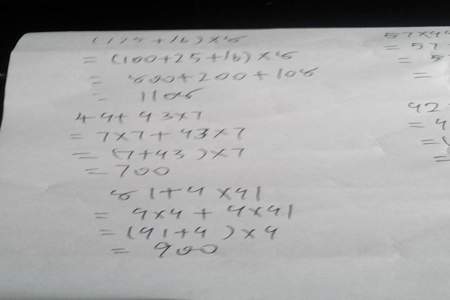 (125+16)×8
= (100+25+16)×8
= 800+200+108
= 1108
44+43×7
= 7×7+43×7
= (7+43)×7
= 700
81+4×41
= 4×4+4×41
= (41+4)×4
= 900
57×4
= 57
= 5
=
42
= 4
= (
=